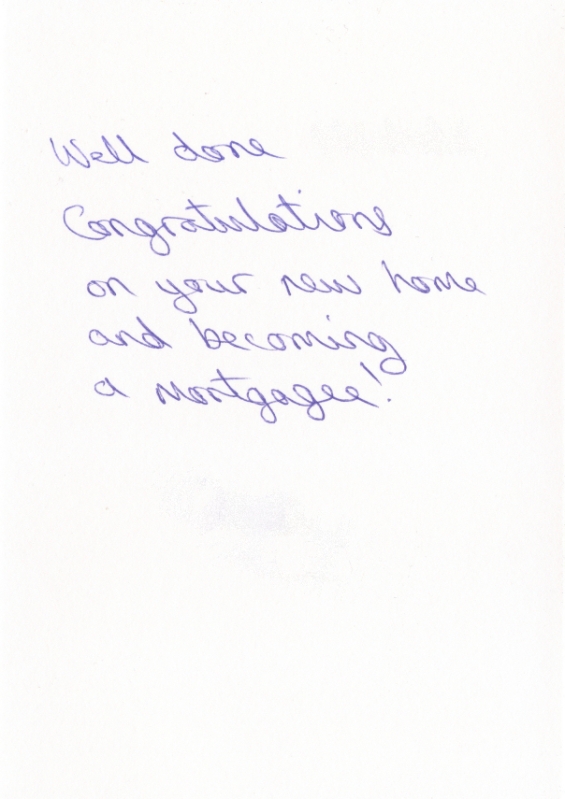 Well done
Congratulations
on your new home
and becoming
a mortgagee!